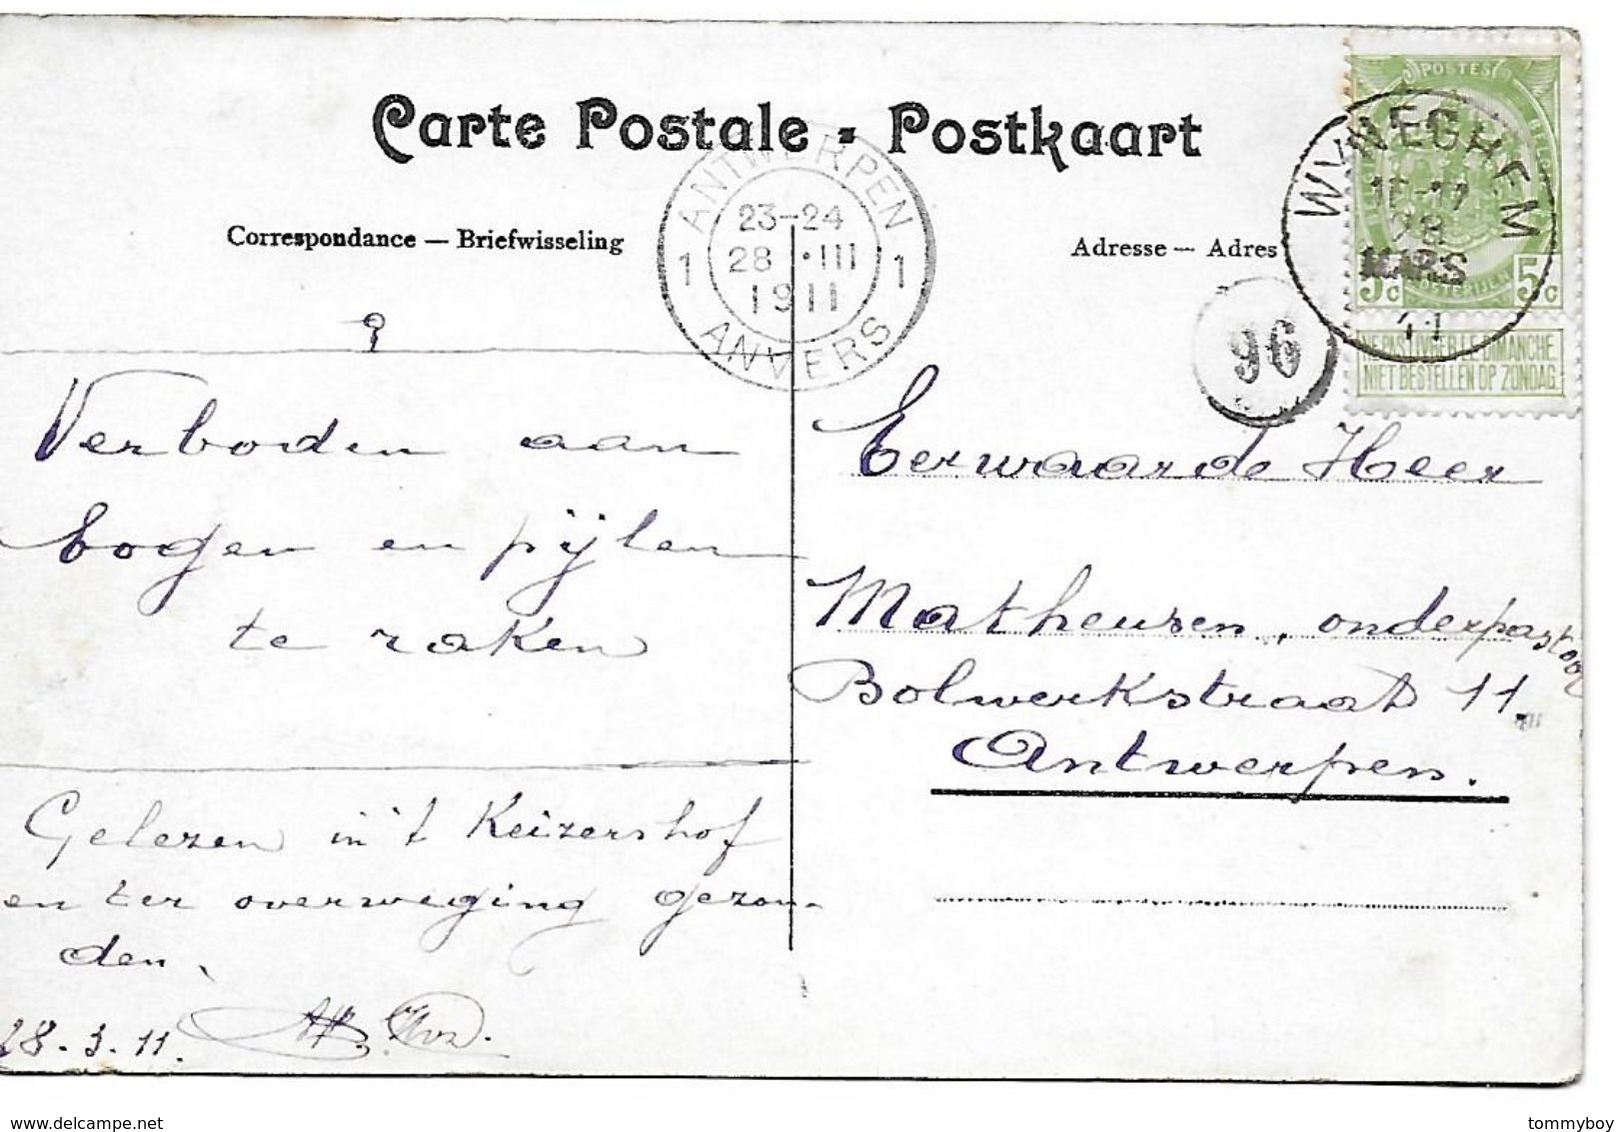 Carte Postale - Postkaart
Correspondance — Briefwisseling
Adresse — Adres
ANTWERPEN
1 23-24 1
28 • III
1911
ANVERS
WYNEGHEM
28
MARS
11
POSTES
5c 5c
NE PAS LIVRER LE DIMANCHE
NIET BESTELLEN OP ZONDAG
96
Verboden aan
bogen en pijlen
te raken
Gelezen in 't Keizershof
en ter overweging gezon-
den.
28.3.11.
Eerwaarde Heer
Matheusen, onderpastoor
Bolwerkstraat 11.
Antwerpen.
www.delcampe.net
tommyboy